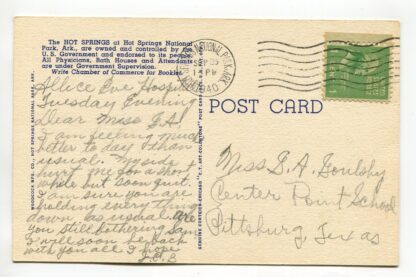 The HOT SPRINGS at Hot Springs National
Park, Ark., are owned and controlled by the
U. S. Government and endorsed to its people.
All Physicians, Bath Houses and Attendants
are under Government Supervision.
Write Chamber of Commerce for Booklet
NATIONAL PARK, ARK.
1 PM
1940
POST CARD
Eve Hospital
Tuesday Evening
Dear Miss G.A.
I am feeling much
better to day than
usual. My side
hurt me for a short
while but soon quit.
I am sure you are
holding everything
down as usual. Are
you still bothering Sam
I will soon be back
with you all I hope
J.C.B
Miss G. A. Goulsby
Center Point School
Pittsburg, Texas
WOODCOCK MFG. CO., HOT SPRINGS NATIONAL PARK, ARK.
GENUINE CURTEICH-CHICAGO "C.T. ART-COLORTONE" POST CARD